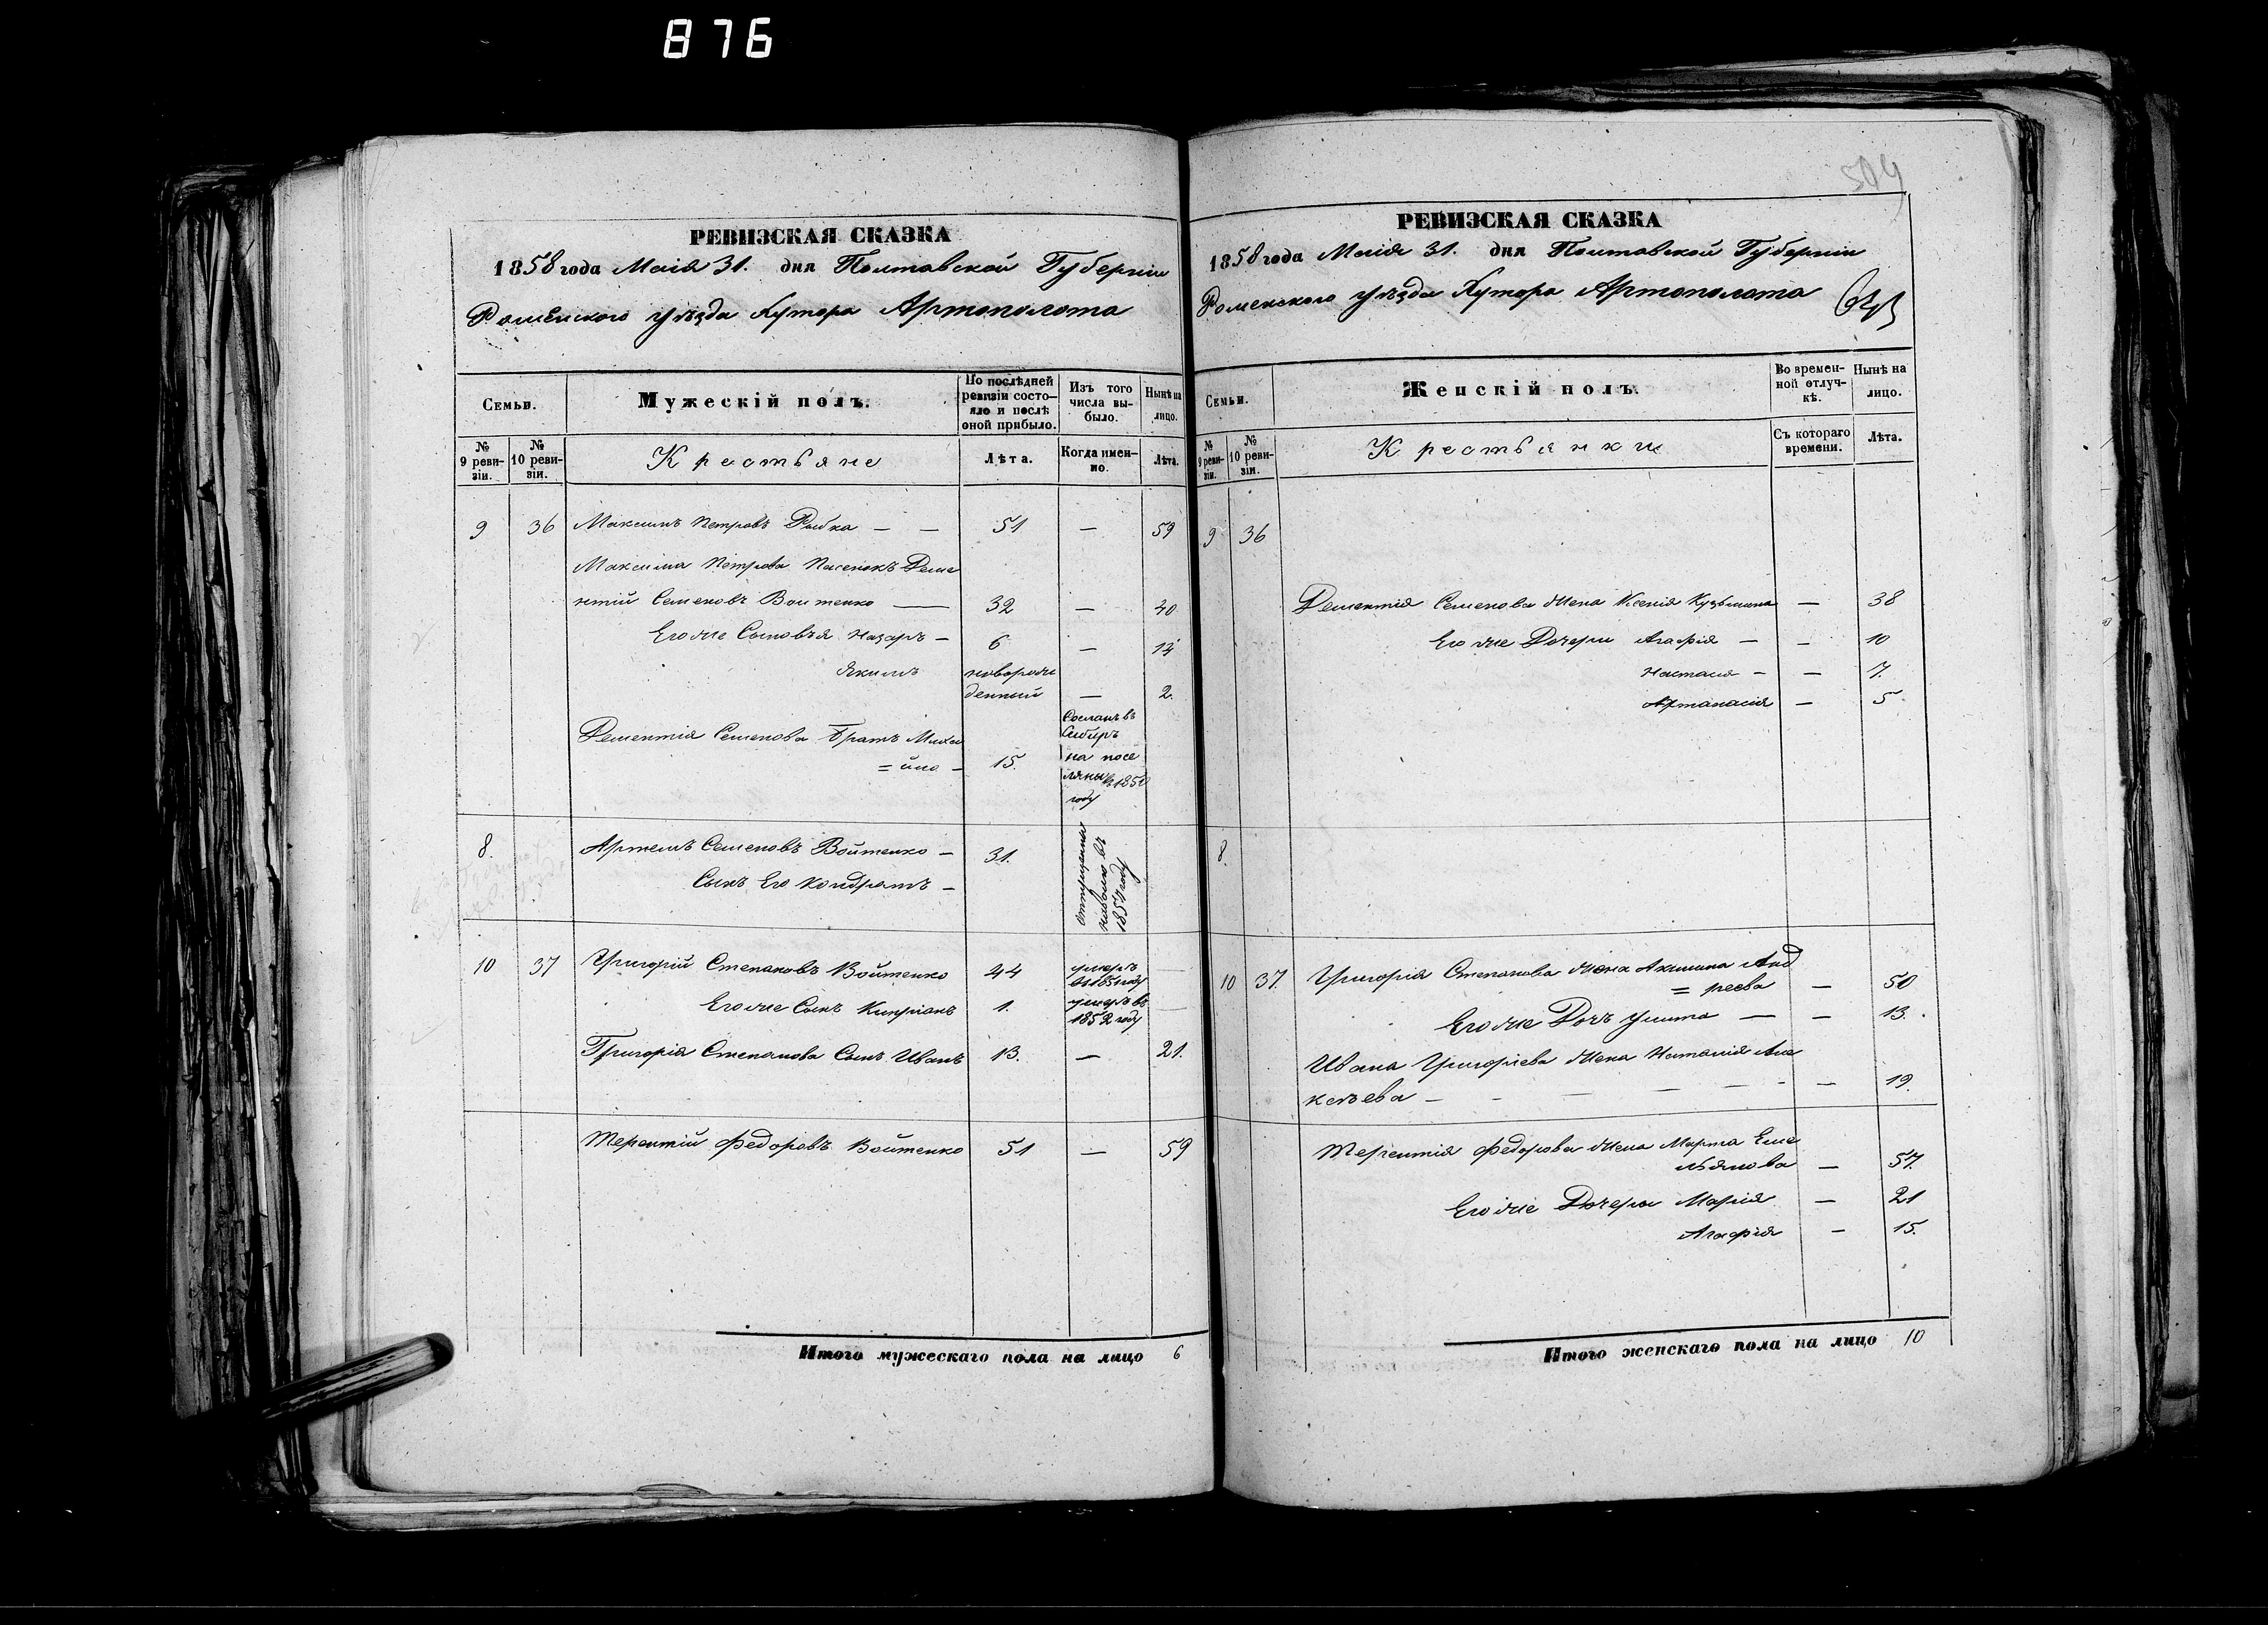 876
504
РЕВИЗСКАЯ СКАЗКА
1858 года Маія 31. дня Полтавской Губерніи
Роменского уѣзда Хутора Артополота
Семьи.
Мужескій полъ.
По послѣдней ревизіи состо-
яло и послѣ
оной прибыло.
Изъ того
числа вы-
было.
Нынѣ на
лицо.
№
9 реви-
зіи.
№
10 реви-
зіи.
Крестьяне
Лѣта.
Когда имен-
но.
Лѣта.
9 36 Максимъ Петровъ Рыбка — — 51 — 59
Максима Петрова Пасенокъ Деме
нтій Семеновъ Воитенко — 32 — 40
Его же Сыновья Назаръ — 6 — 14
Якимъ новорож
денный — 2.
Дементія Семенова Братъ Михай
=йло — 15.
Сосланъ въ
Сибиръ
на посе
году
8. Артемъ Семеновъ Войтенко — 31.
Сынъ Его Кондратъ —
на волю въ
1857 году
10 37 Григорій Степановъ Войтенко 44 умеръ
Его же Сынъ Кипріанъ 1. умеръ въ
1852 году
Григорія Степанова Сынъ Иванъ 13. — 21.
Терентій Федоровъ Войтенко 51 — 59
Итого мужескаго пола на лицо 6
РЕВИЗСКАЯ СКАЗКА
1858 года Маія 31. дня Полтавской Губерніи
Роменского уѣзда Хутора Артополота
Семьи.
Женскій полъ.
Во времен-
ной отлуч-
кѣ.
Нынѣ на
лицо.
№
9 реви-
зіи.
№
10 реви-
зіи.
Крестьянки
Съ котораго
времени.
Лѣта.
9 36
Дементія Семенова Жена Ксенія Кузьмина — 38
Его же Дочери Агафія — — 10
Настасія — — 7.
Артанасія — 5
8.
10 37. Григорія Степанова Жена Акилина Анд
=реева — 50
Его же Дочъ Улита — — 13.
Ивана Григоріева Жена Наталія Але
ксѣева — — — — — — 19.
Терентія Федорова Жена Марта Еме
льянова — 57.
Его же Дочери Марія — 21
Агафія — 15.
Итого женскаго пола на лицо 10